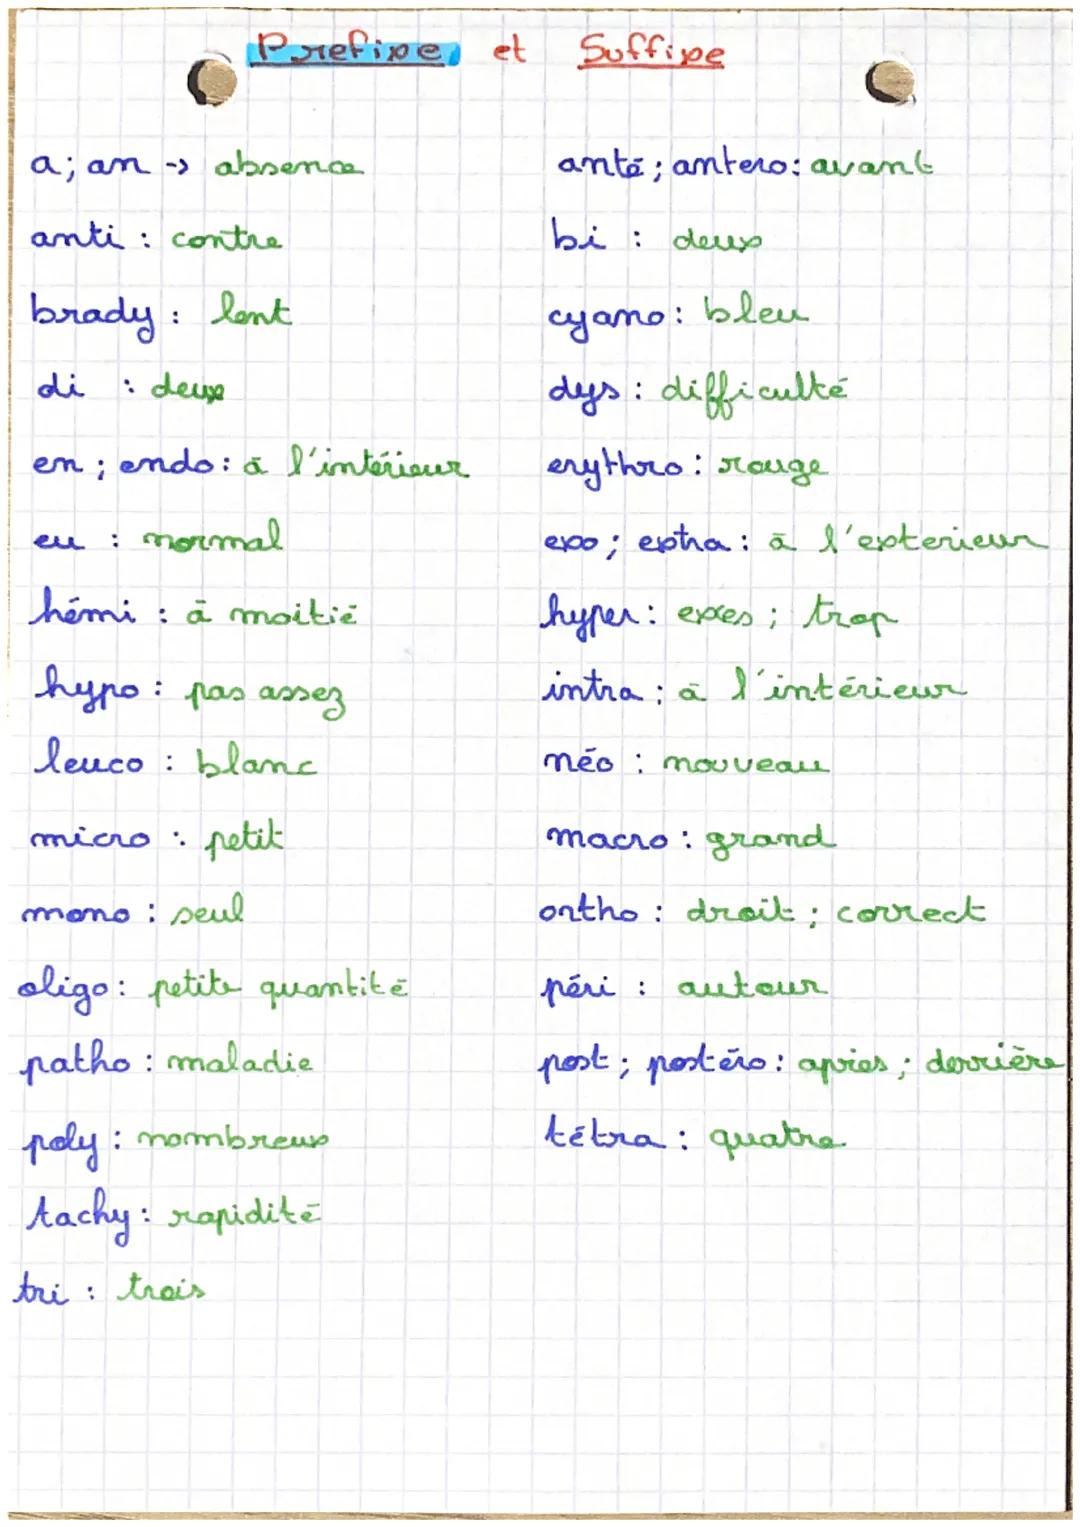 Prefixe et Suffixe
a; an -> absence
anté; antero: avant
anti : contre
bi : deux
brady : lent
cyano : bleu
di : deux
dys : difficulté
en ; endo : à l'intérieur
erythro : rouge
eu : normal
exo ; extra : à l'exterieur
hémi : à moitié
hyper : exces ; trop
hypo : pas assez
intra : à l'intérieur
leuco : blanc
néo : nouveau
micro : petit
macro : grand
mono : seul
ortho : droit ; correct
oligo : petite quantité
péri : autour
patho : maladie
post ; postéro : apries ; derrière
poly : nombreux
tétra : quatre
tachy : rapidité
tri : trois